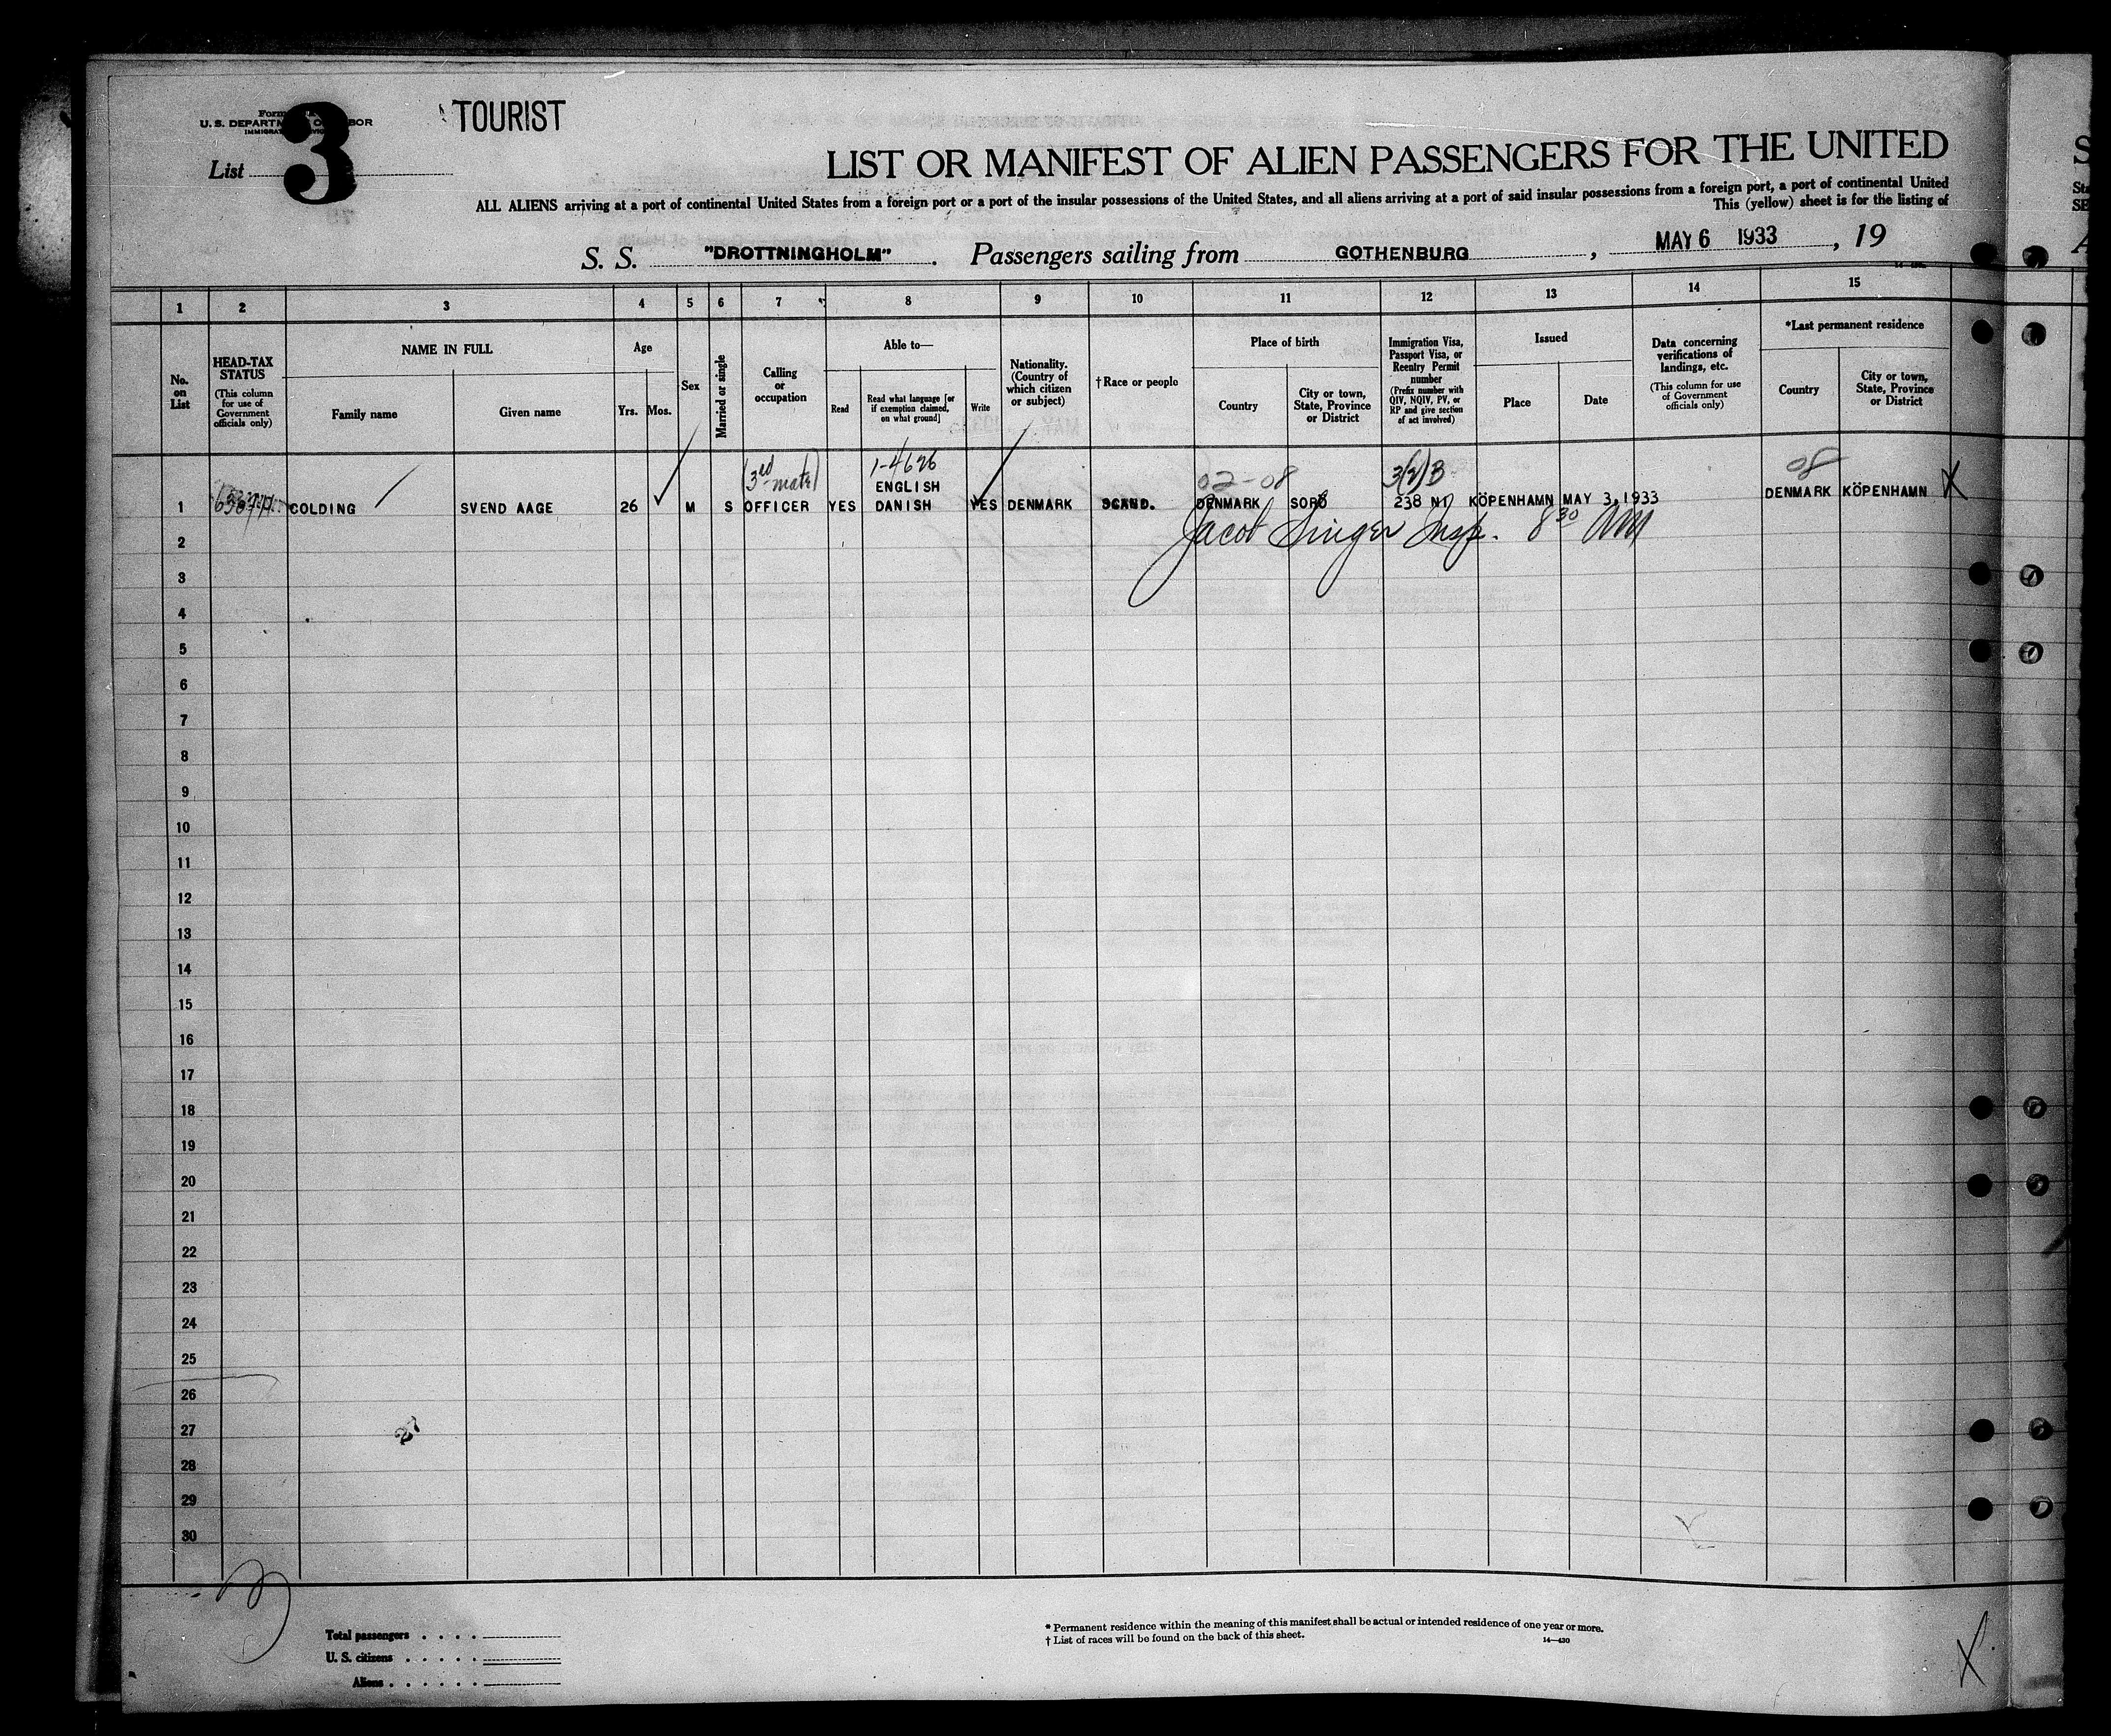 TOURIST
U. S. DEPARTMENT OF LABOR
List 3
LIST OR MANIFEST OF ALIEN PASSENGERS FOR THE UNITED
ALL ALIENS arriving at a port of continental United States from a foreign port or a port of the insular possessions of the United States, and all aliens arriving at a port of said insular possessions from a foreign port, a port of continental United
This (yellow) sheet is for the listing of
S. S. "DROTTNINGHOLM". Passengers sailing from GOTHENBURG, MAY 6 1933, 19
1 2 3 4 5 6 7 8 9 10 11 12 13 14 15
No. on List
HEAD-TAX STATUS
(This column for use of Government officials only)
NAME IN FULL
Family name
Given name
Age
Yrs. Mos.
Sex
Married or single
Calling or occupation
Able to—
Read
Read what language [or if exemption claimed, on what ground]
Write
Nationality. (Country of which citizen or subject)
†Race or people
Place of birth
Country
City or town, State, Province or District
Immigration Visa, Passport Visa, or Reentry Permit number
(Prefix number with QIV, NQIV, PV, or RP and give section of act involved)
Issued
Place
Date
Data concerning verifications of landings, etc.
(This column for use of Government officials only)
*Last permanent residence
Country
City or town, State, Province or District
(3rd mate) 02-08 3(2)B 08
ENGLISH
1 COLDING SVEND AAGE 26 M S OFFICER YES DANISH YES DENMARK SCAND. DENMARK SORÖ 238 KÖPENHAMN MAY 3, 1933 DENMARK KÖPENHAMN X
2 Jacob Singer Insp. 8 30 AM
3
4
5
6
7
8
9
10
11
12
13
14
15
16
17
18
19
20
21
22
23
24
25
26
27
28
29
30
Total passengers
U. S. citizens
Aliens
* Permanent residence within the meaning of this manifest shall be actual or intended residence of one year or more.
† List of races will be found on the back of this sheet.
14—430
X